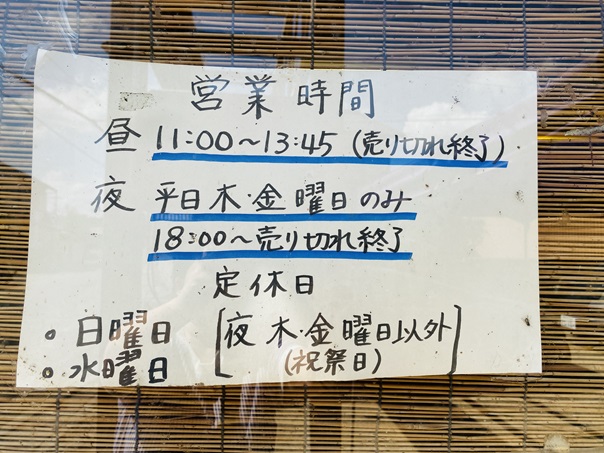 営業時間
昼 11:00〜13:45 (売り切れ終了)
夜 平日木・金曜日のみ
18:00〜売り切れ終了
定休日
。日曜日 [夜 木・金曜日以外
。水曜日 (祝祭日)]